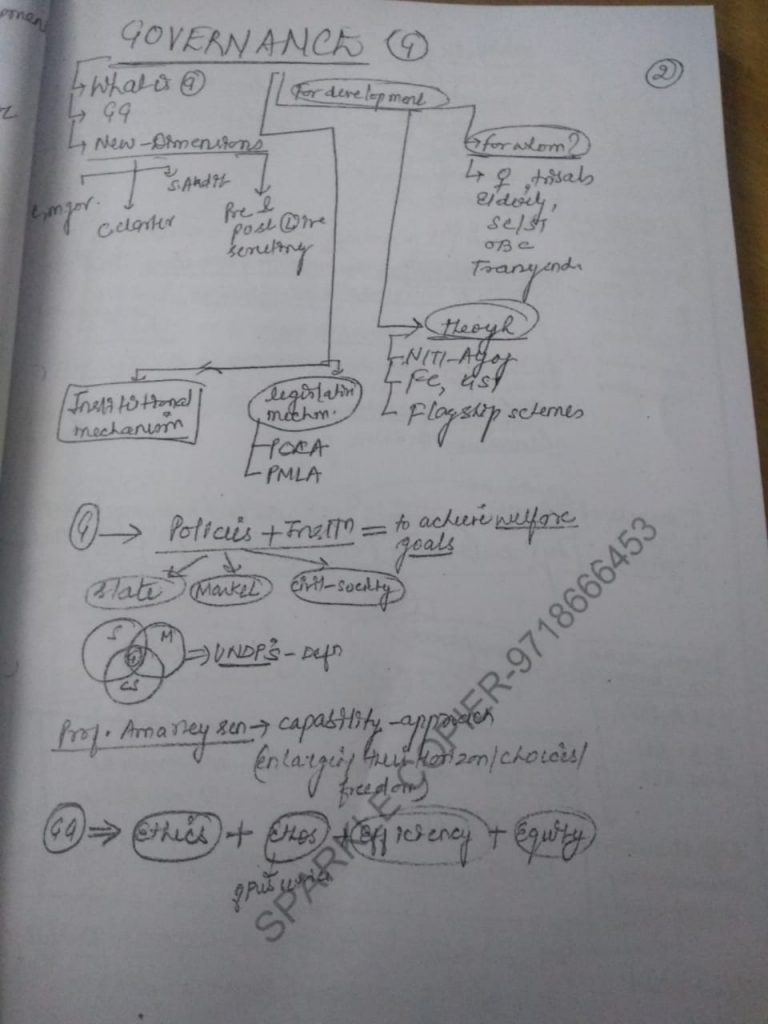 GOVERNANCE G
2
What is G
GG
New-Dimensions
S. Audit
C. charter
Pre &
post Live
scrutiny
For development
for whom?
♀, tribals
Elderly,
SC/ST
OBC
Transgend.
through
NITI-Ayog
FC, GST
Flagship schemes
Institutional
mechanism
legislative
mechm.
POCA
PMLA
G → Policies + Instn = to achieve welfare
goals
State Market Civil-Society
S M
G
CS
⇒ UNDP's - Defn
Prof. Amartey sen → capability-approach
(enlarging their horizon/choices/
freedom)
GG ⇒ Ethics + Ethos + Efficiency + Equity
SPARKLE COPIER-9718666453